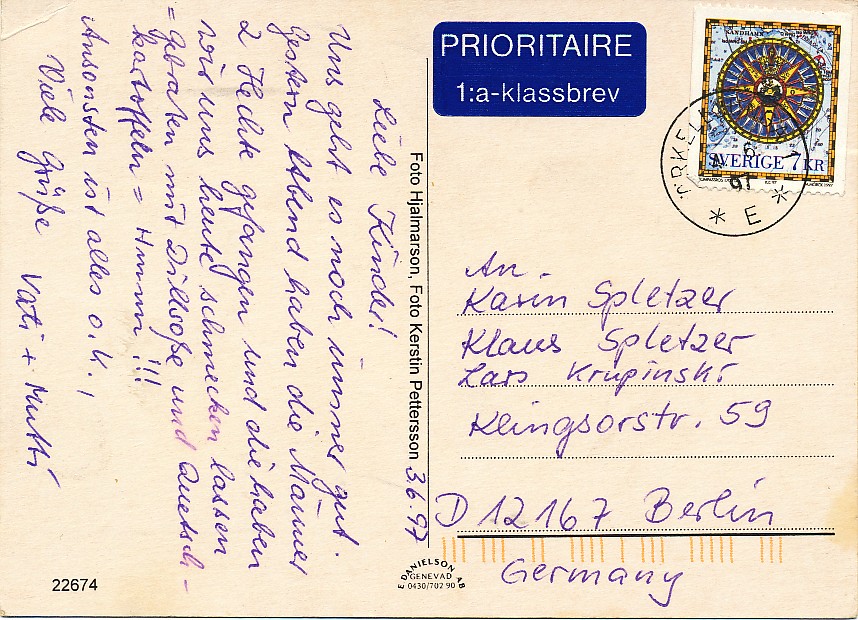 PRIORITAIRE
1:a-klassbrev
SANDHAMN
SVERIGE 7 KR
97
* E *
3.6.97
Liebe Kinder!
Uns geht es noch immer gut.
Gestern Abend haben die Männer
2 Hechte gefangen und die haben
wir uns heute schmecken lassen
= gebraten mit Dillsoße und Quetsch-
kartoffeln = Hmmm!!!
Ansonsten ist alles o.k.,
Viele Grüße Vati + Mutti
Foto Hjalmarson, Foto Kerstin Pettersson
An.
Karin Spletzer
Klaus Spletzer
Lars Krupinski
Klingsorstr. 59
D 12167 Berlin
Germany
22674
E DANIELSON AB
GENEVAD
0430/702 90